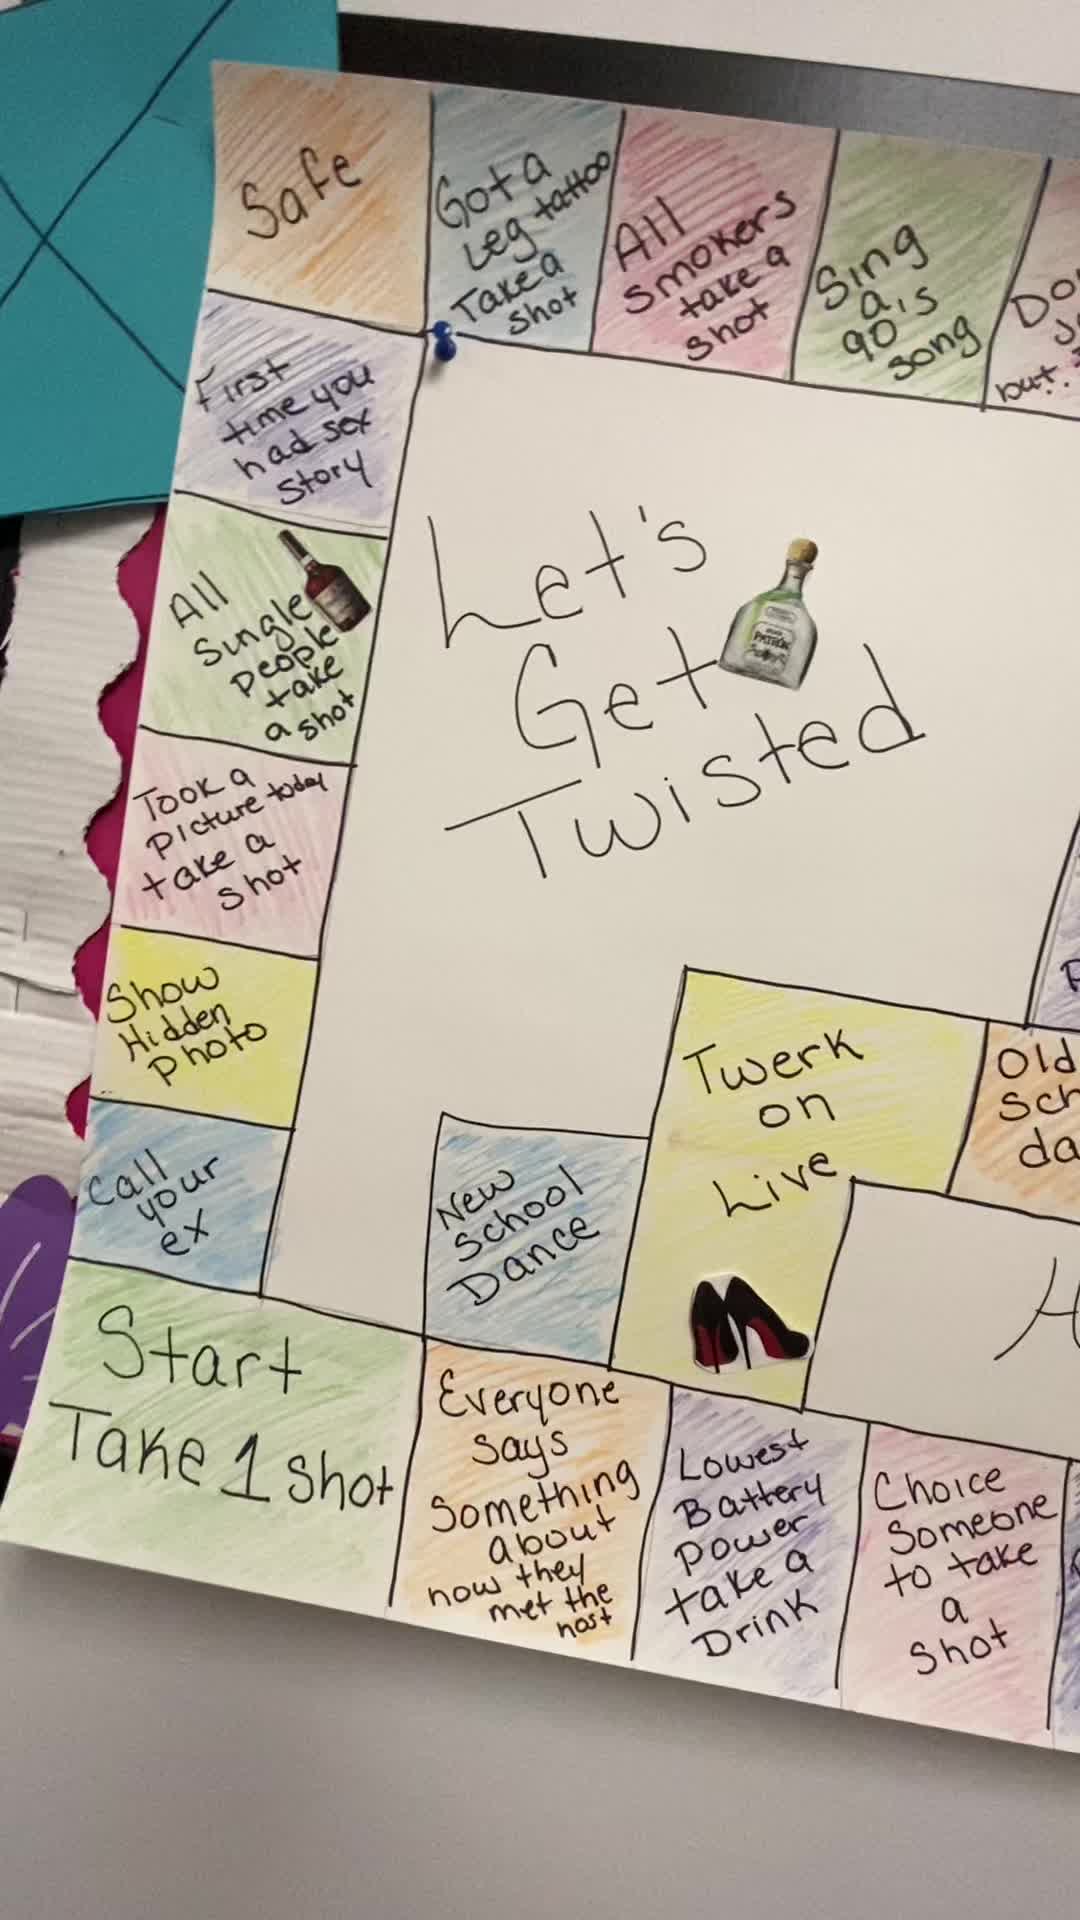 Safe
Got a
Leg tattoo
Take a
shot
All
smokers
take a
shot
Sing
a
90's
song
but
First
time you
had sex
story
All
Single
people
take
a shot
Took a
picture today
take a
shot
Show
Hidden
Photo
Call
your
ex
Let's
Get
Twisted
PATRÓN
Twerk
on
Live
Old
New
School
Dance
Start
Take 1 shot
Everyone
says
something
about
how they
met the
host
Lowest
Battery
power
take a
Drink
Choice
Someone
to take
a
shot